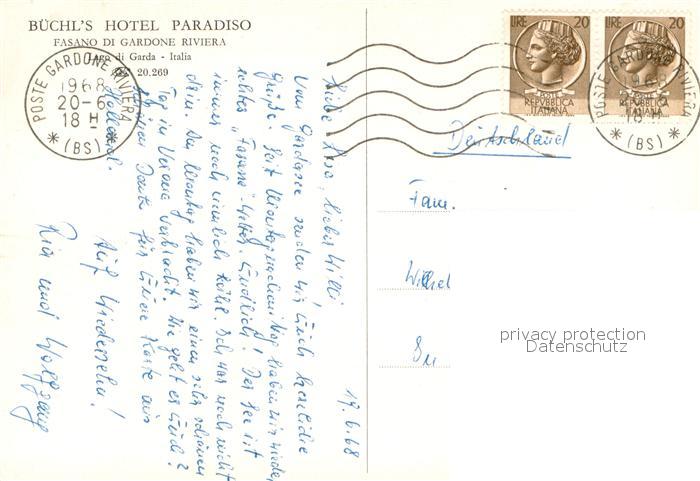 BÜCHL'S HOTEL PARADISO
FASANO DI GARDONE RIVIERA
Lago di Garda - Italia
20.269
POSTE GARDONE RIVIERA
1968
20-6
18 H
(BS)
LIRE 20
POSTE
REPVBBLICA
ITALIANA
LIRE 20
POSTE
REPVBBLICA
ITALIANA
POSTE GARDONE RIVIERA
1968
18 H
(BS)
19.6.68
Liebe Rosa, lieber Willi!
Vom Gardasee senden wir Euch herzliche
Grüße. Seit Montag nachmittag haben wir wieder
echtes „Fasano"-Wetter. Endlich! Der See ist
immer noch ziemlich kühl. Ich war noch nicht
drin. Am Montag haben wir einen sehr schönen
Tag in Verona verbracht. Wie geht es Euch?
Danke für Eure Karte aus
Holland.
Auf Wiedersehn!
Ria und Wolfgang
Deutschland
Fam.
privacy protection
Datenschutz